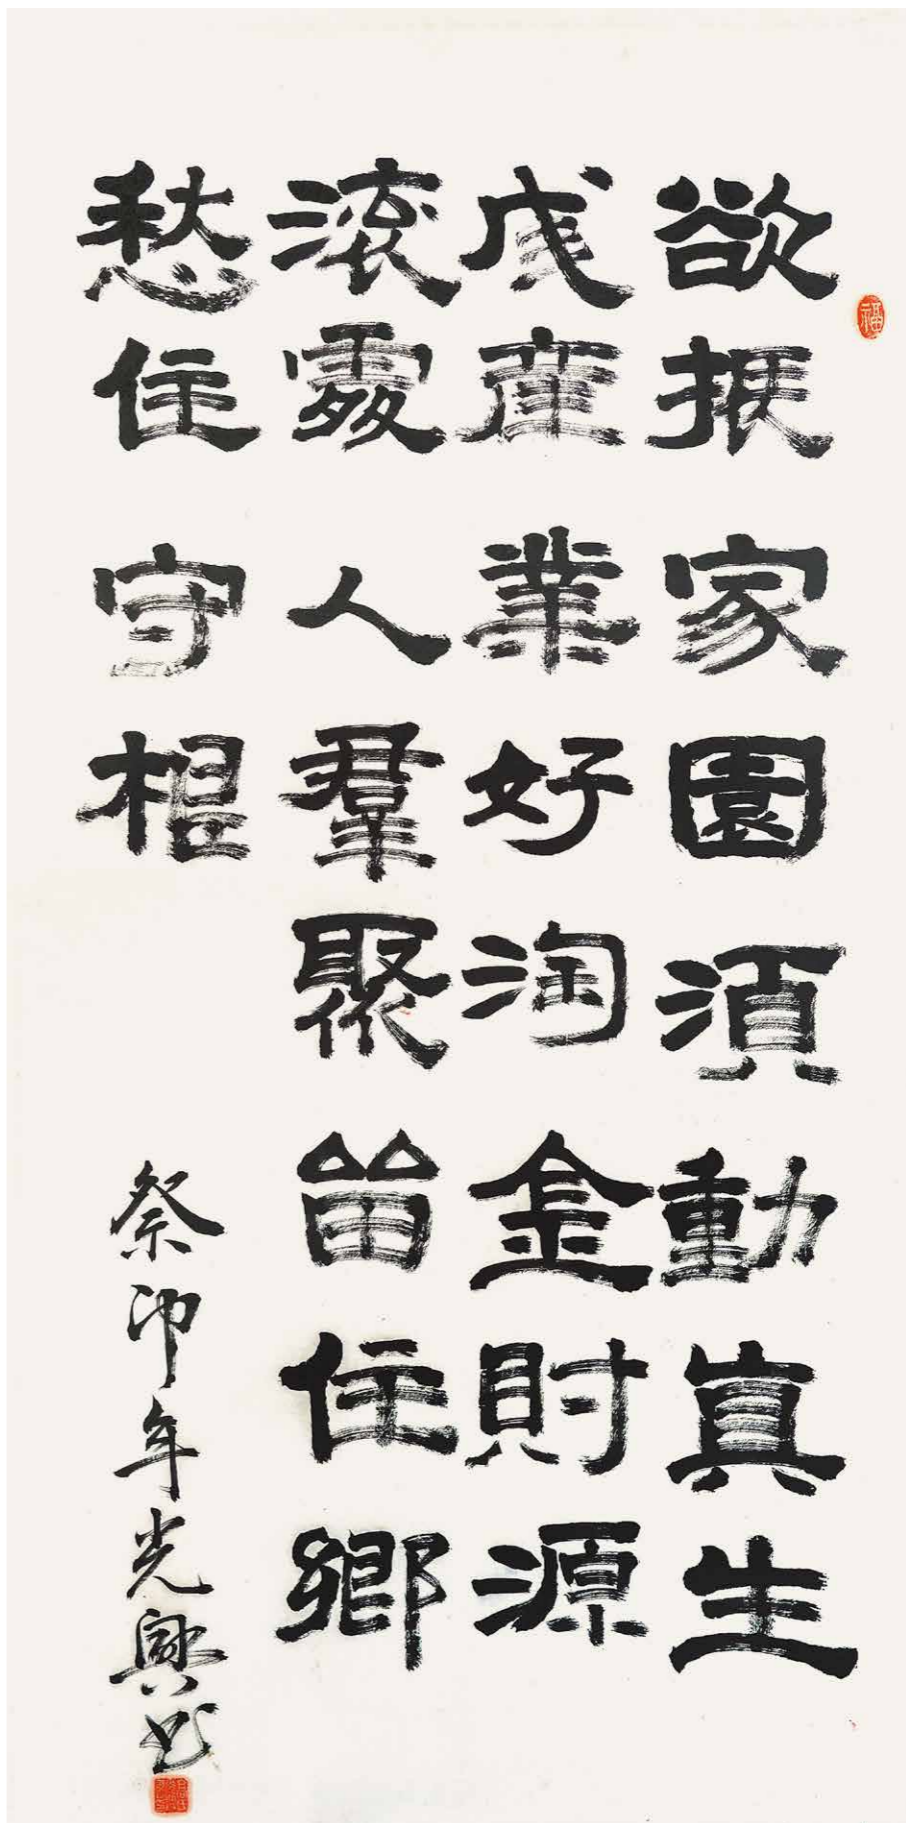 福
欲振家園須動真生
成產業好淘金財源
滾處人羣聚留住鄉
愁住守根
癸卯年光興書